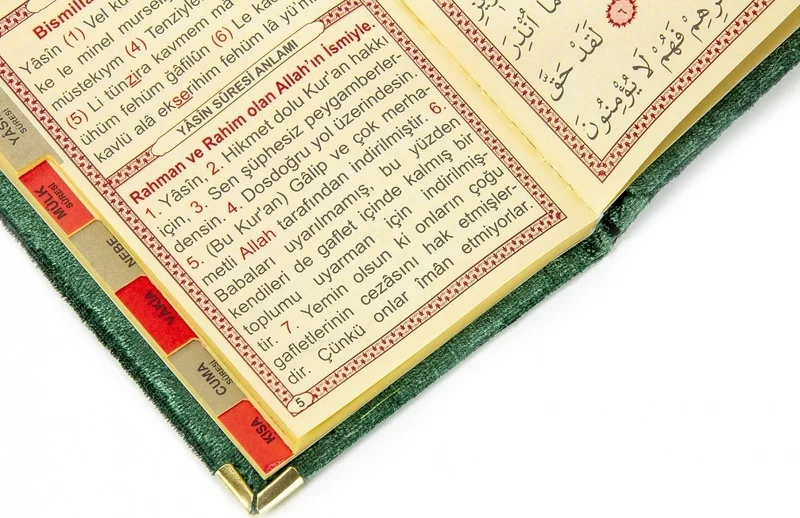 Bismilla
Yâsîn (1) Vel kû
ke le minel mursel
müstekıym (4) Tenziyle
(5) Li tünzira kavmem mâ
ühüm fehüm ğâfilûn (6) Le kad
kavlü alâ ekserihim fehüm lâ yü'm
YÂSÎN SÛRESİ ANLAMI
Rahman ve Rahim olan Allah'ın ismiyle.
1. Yâsîn, 2. Hikmet dolu Kur'an hakkı
için, 3. Sen şüphesiz peygamberler-
densin, 4. Dosdoğru yol üzerindesin.
5. (Bu Kur'an) Gâlip ve çok merha-
metli Allah tarafından indirilmiştir. 6.
Babaları uyarılmamış, bu yüzden
kendileri de gaflet içinde kalmış bir
toplumu uyarman için indirilmiş-
tir. 7. Yemin olsun ki onların çoğu
gafletlerinin cezâsını hak etmişler-
dir. Çünkü onlar îmân etmiyorlar.
5
YÂSİ
SÛRESİ
MÜLK
SÛRESİ
NEBE
VAKIA
CUMA
SÛRESİ
KISA
مَا أُنْذِرَ
لَقَدْ حَقَّ
فَهُمْ لَا يُؤْمِنُونَ